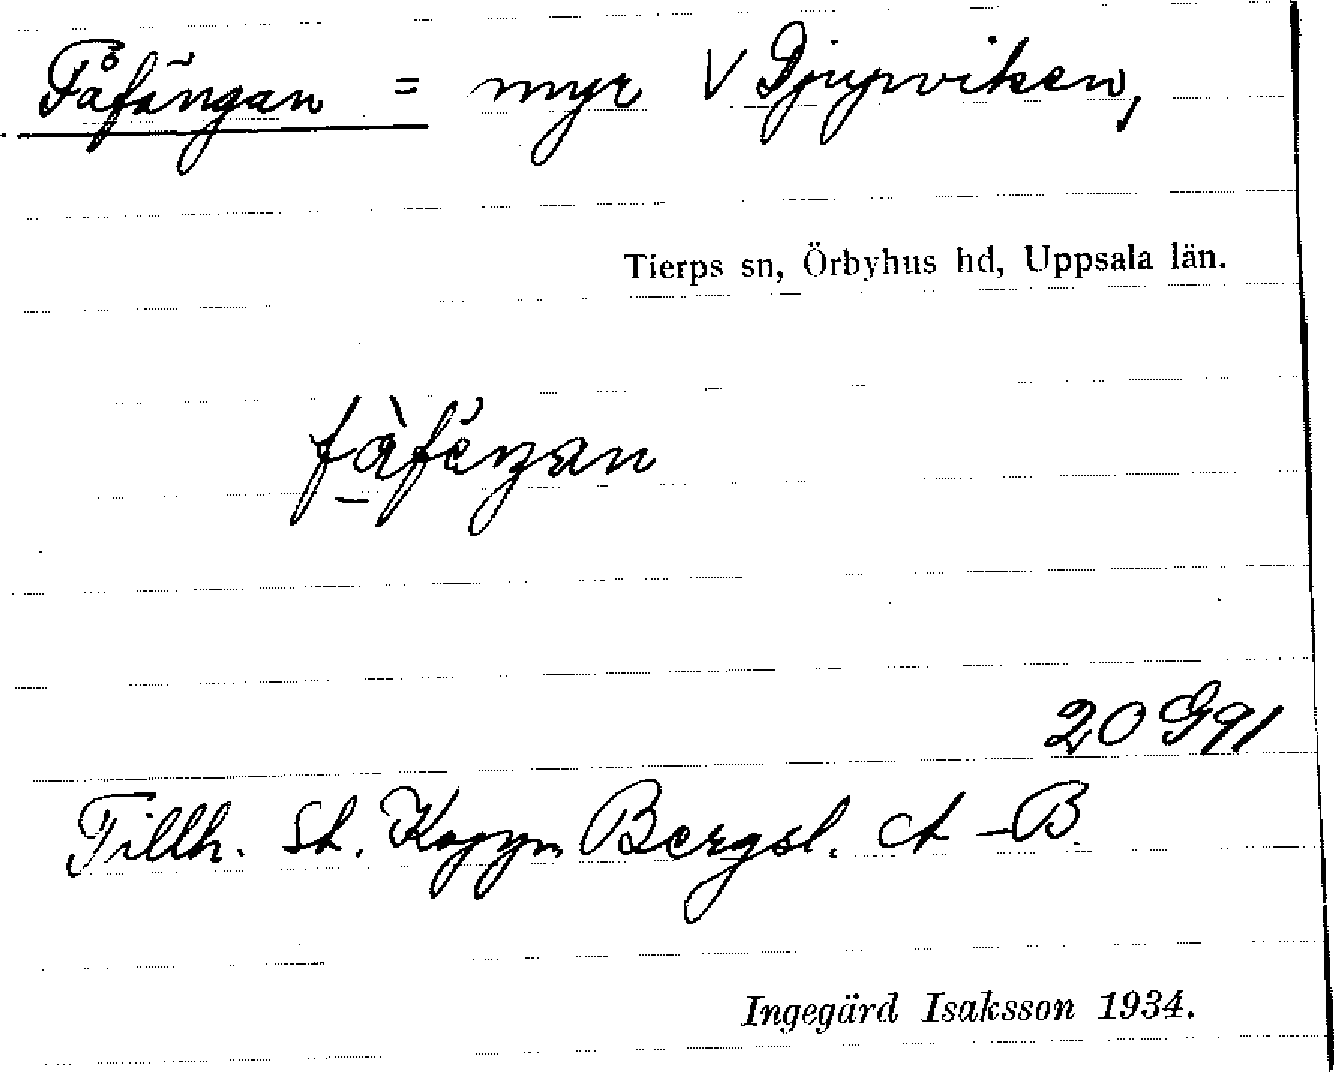 Fåfängan = myr V Djupviken,
Tierps sn, Örbyhus hd, Uppsala län.
20 G 91
Tillh. St. Koppn Bergsl. A-B.
Ingegärd Isaksson 1934.